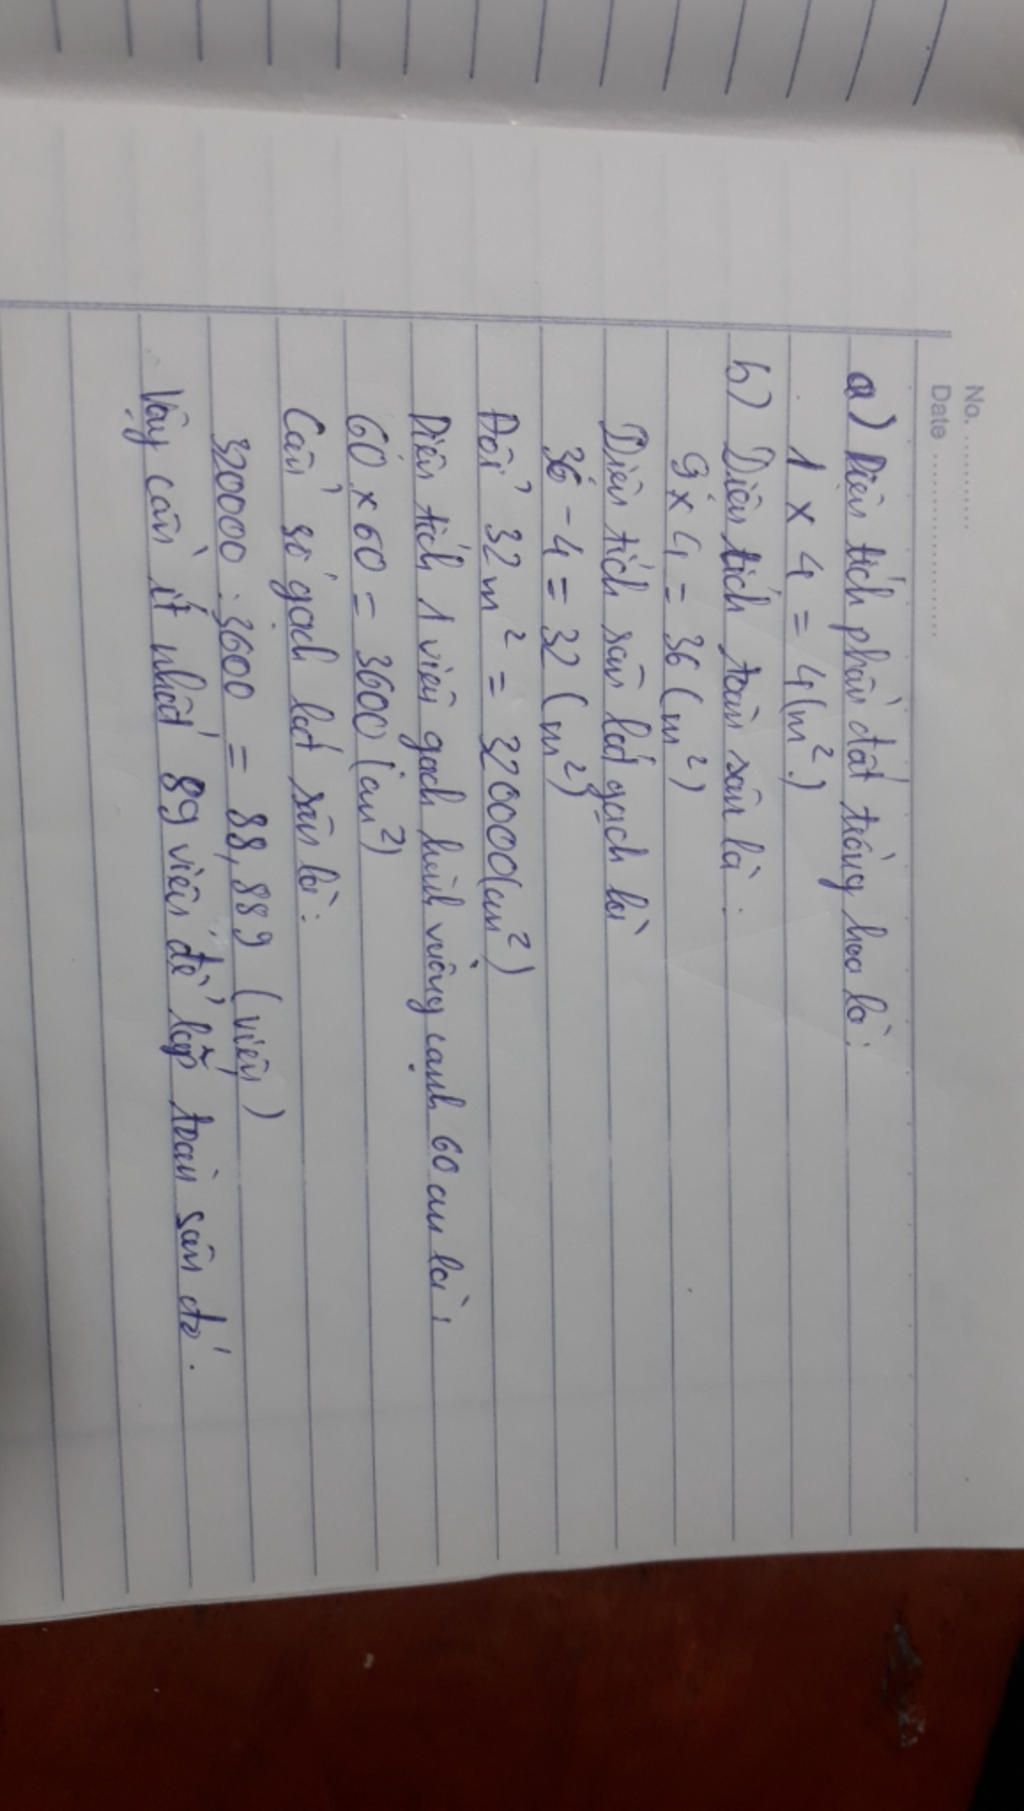 No. ..........
Date ....................
a) Diện tích phần đất trồng hoa là:
1 × 4 = 4 (m²)
b) Diện tích toàn sân là:
9 × 4 = 36 (m²)
Diện tích sân lát gạch là
36 - 4 = 32 (m²)
Đổi 32m² = 320000 (cm²)
Diện tích 1 viên gạch hình vuông cạnh 60 cm là:
60 × 60 = 3600 (cm²)
Cần số gạch lát sân là:
320000 : 3600 = 88,889 (viên)
Vậy cần ít nhất 89 viên để lấp toàn sân đó.